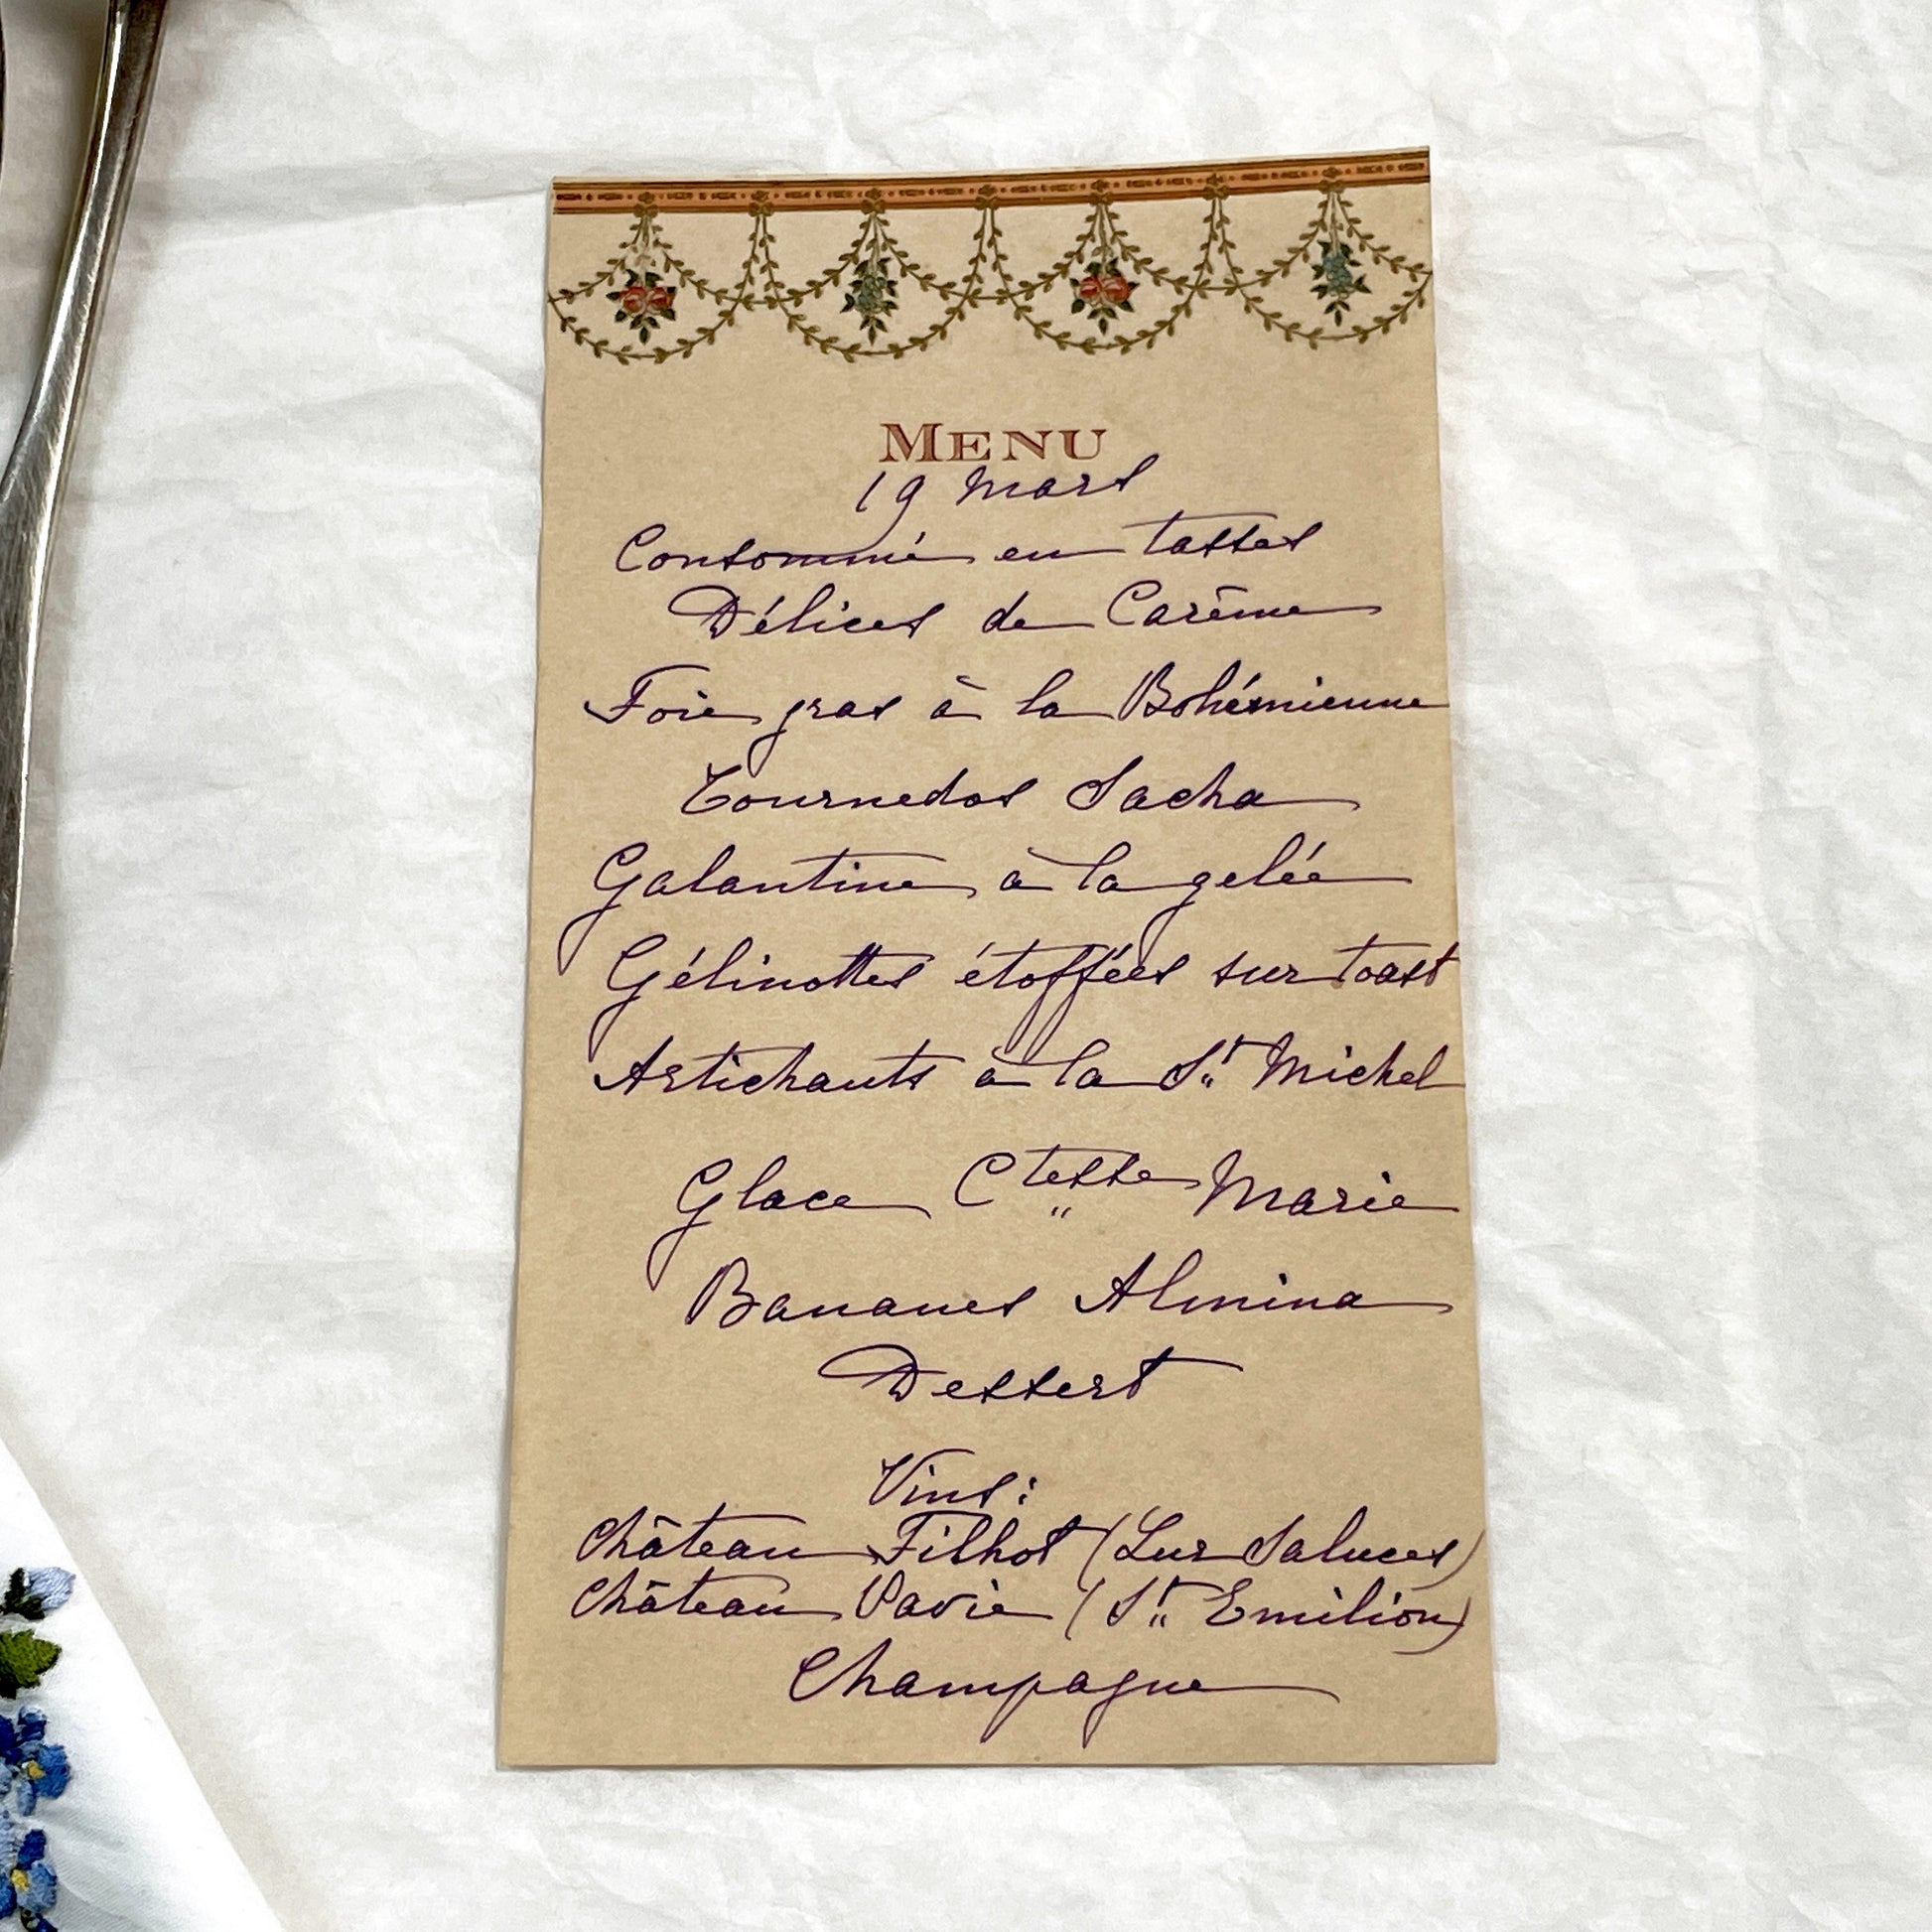 MENU
19 Mars
Consommé en tasses
Délices de Carême
Foie gras à la Bohémienne
Tournedos Sacha
Galantine à la gelée
Gélinottes étoffées sur toast
Artichauts à la St Michel
Glace Ctesse Marie
Bananes Almina
Dessert
Vins :
Château Filhot (Lur Saluces)
Château Pavie (St Emilion)
Champagne